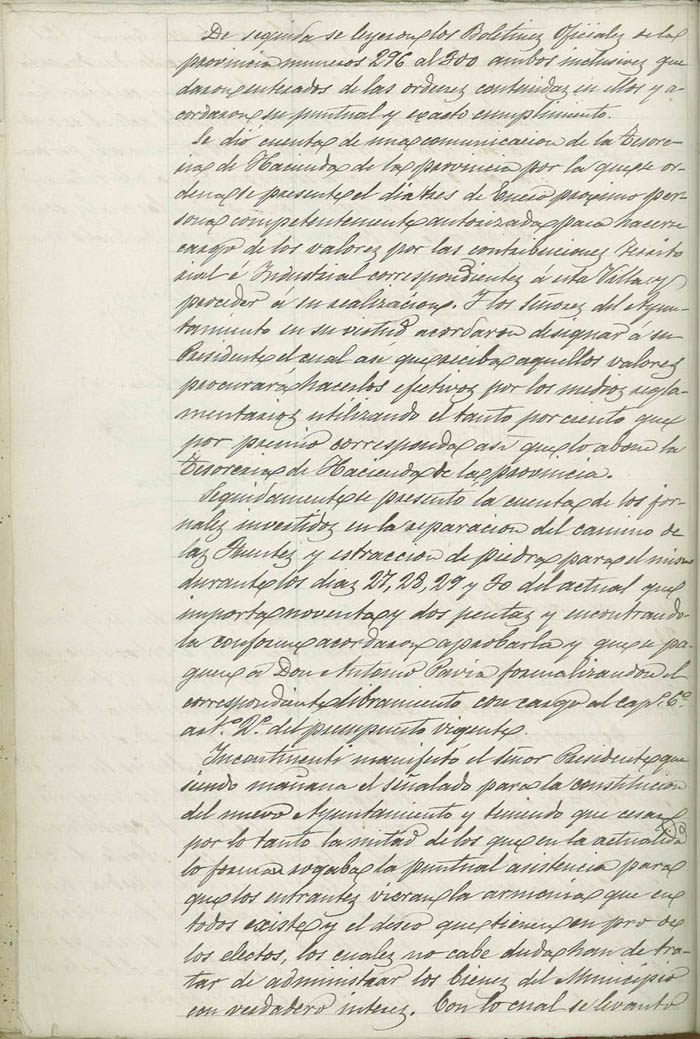 De seguida se leyeron los Boletines Oficiales de la
provincia numeros 296 al 300 ambos inclusives que
daron enterados de las ordenes contenidas en ellos y a-
cordaron su puntual y exacto cumplimiento.
Se dió cuenta de una comunicacion de la Tesore-
ria de Hacienda de la provincia por la que se or-
dena se presente el dia tres de Enero proximo per-
sona competentemente autorizada para hacerse
cargo de los valores por las contribuciones Territo
rial é Industrial correspondientes á esta Villa y
proceder á su realizacion. Y los señores del Ayun-
tamiento en su virtud acordaron designar á su
Presidente el cual asi que reciba aquellos valores
procurará hacerlos efectivos por los medios regla-
mentarios utilizando el tanto por ciento que
por premio corresponda asi que lo abone la
Tesoreria de Hacienda de la provincia.
Seguidamente se presentó la cuenta de los jor-
nales invertidos en la reparacion del camino de
las Fuentes y estraccion de piedra para el mismo
durante los dias 27, 28, 29 y 30 del actual que
importa noventa y dos pesetas y encontrando-
la conforme acordaron aprobarla y que se pa-
guen á Don Antonio Pavia formalizandose el
correspondiente libramiento con cargo al capº. 6º.
artº. 2º. del presupuesto vigente.
Incontinenti manifestó el señor Presidente que
siendo mañana el señalado para la constitucion
del nuevo Ayuntamiento y teniendo que cesar
por lo tanto la mitad de los que en la actualidad
lo forman rogaba la puntual asistencia para
que los entrantes vieran la armonia que en
todos existe y el deseo que tienen en pro de
los electos, los cuales no cabe duda han de tra-
tar de administrar los bienes del Municipio
con verdadero interes. Con lo cual se levantó